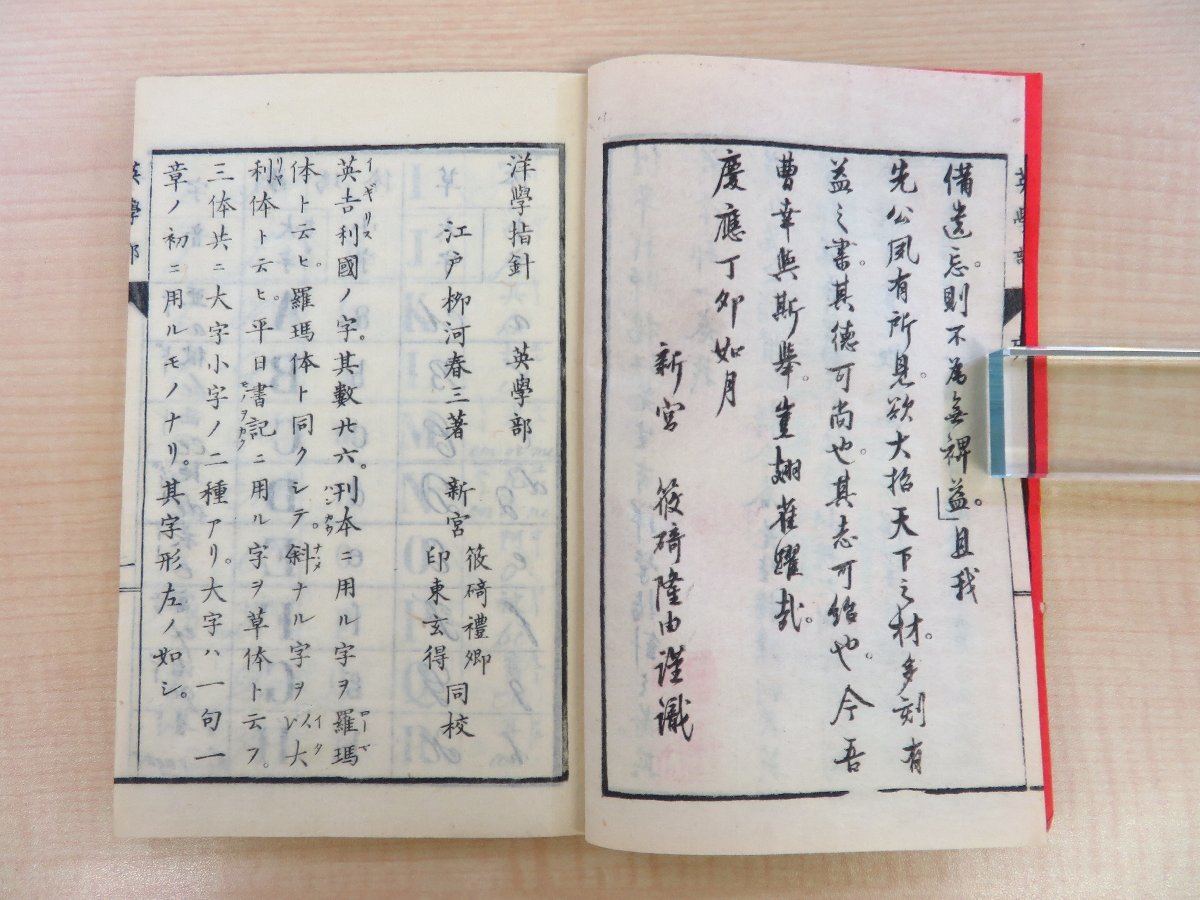 備遺忘。則不爲無裨益。且我
先公夙有所見。欲大招天下之材。多刻有
益之書。其德可尚也。其志可紹也。今吾
曹幸與斯擧。豈翅雀躍哉。
慶應丁卯如月
新宮 筱﨑隆由謹識
洋學指針 英學部
江戸 栁河春三著 新宮 筱﨑禮卿 印東玄得 同校
英吉利國ノ字。其數廿六。刊本ニ用ル字ヲ羅瑪
体ト云ヒ。羅瑪体ト同クシテ。斜ナル字ヲ以大
利体ト云ヒ。平日書記ニ用ル字ヲ草体ト云フ。
三体共ニ大字小字ノ二種アリ。大字ハ一句一
章ノ初ニ用ルモノナリ。其字形左ノ如シ。
英學部
一